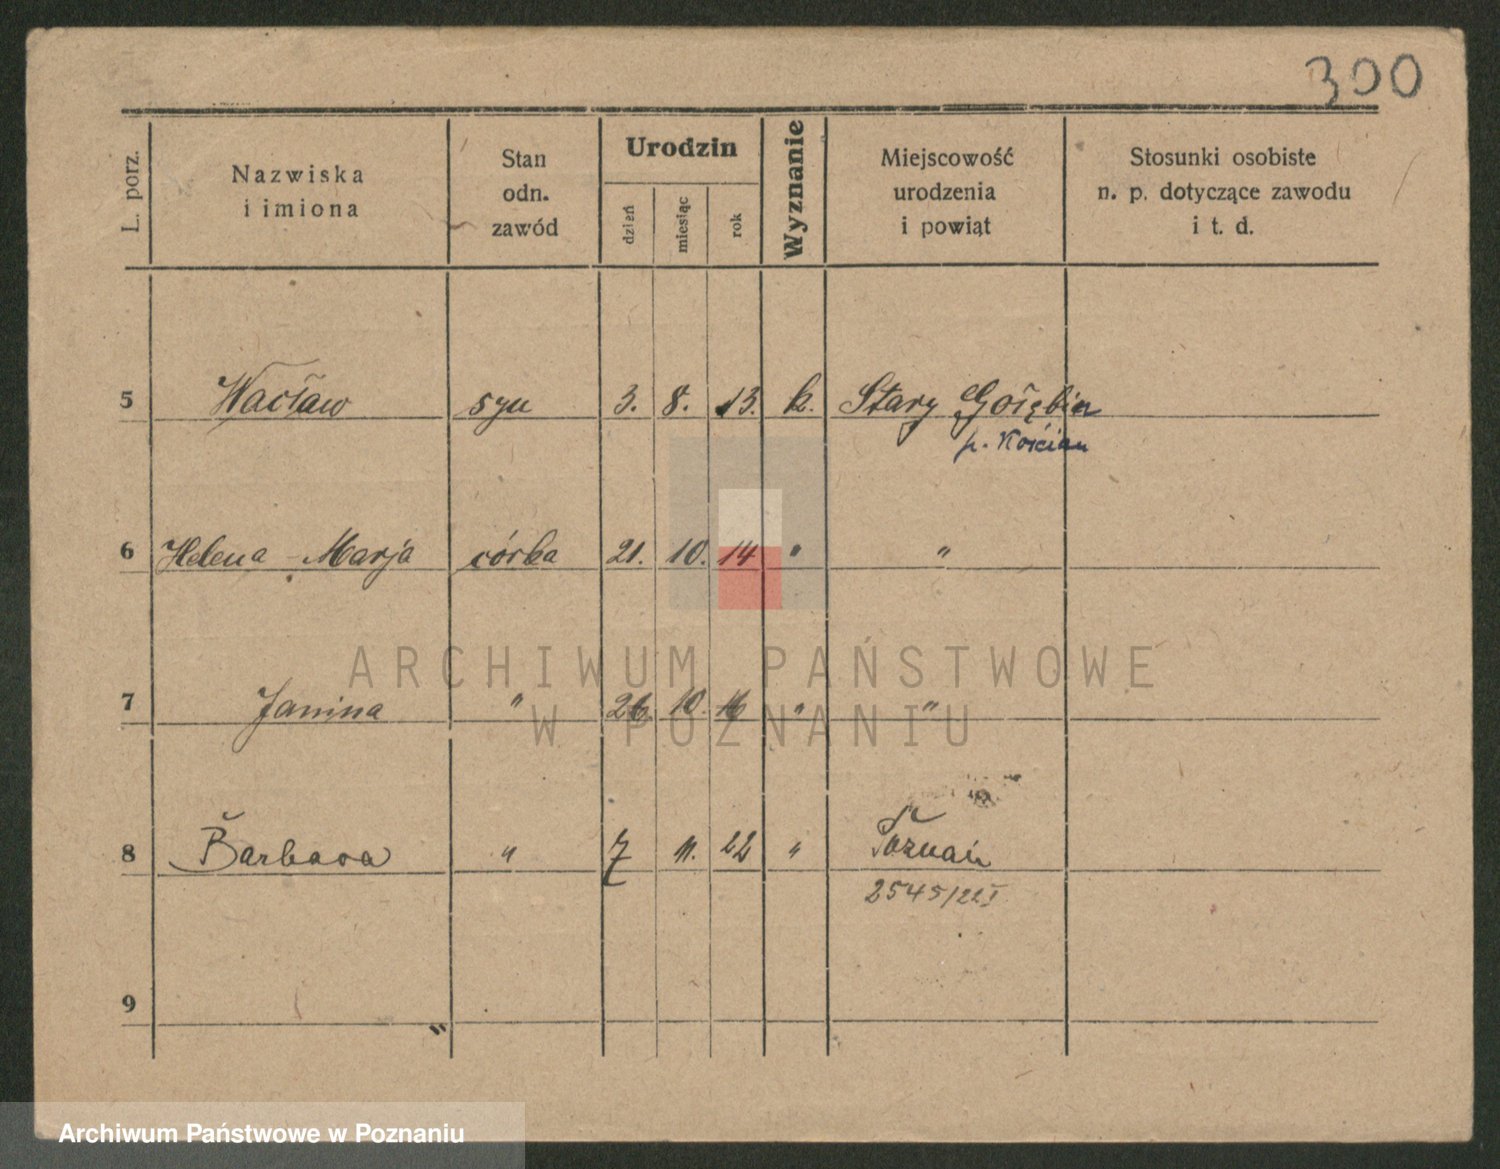 300
L. porz.
Nazwiska
i imiona
Stan
odn.
zawód
Urodzin
dzień
miesiąc
rok
Wyznanie
Miejscowość
urodzenia
i powiąt
Stosunki osobiste
n. p. dotyczące zawodu
i t. d.
5 Wacław syn 3. 8. 13. k. Stary Gołębin
p. Kościan
6 Helena Marja córka 21. 10. 14 " "
ARCHIWUM PAŃSTWOWE
7 Janina " 26. 10. 16 " "
W POZNANIU
8 Barbara " 7 11. 22 " Poznań
2545/22 I
9
"
Archiwum Państwowe w Poznaniu